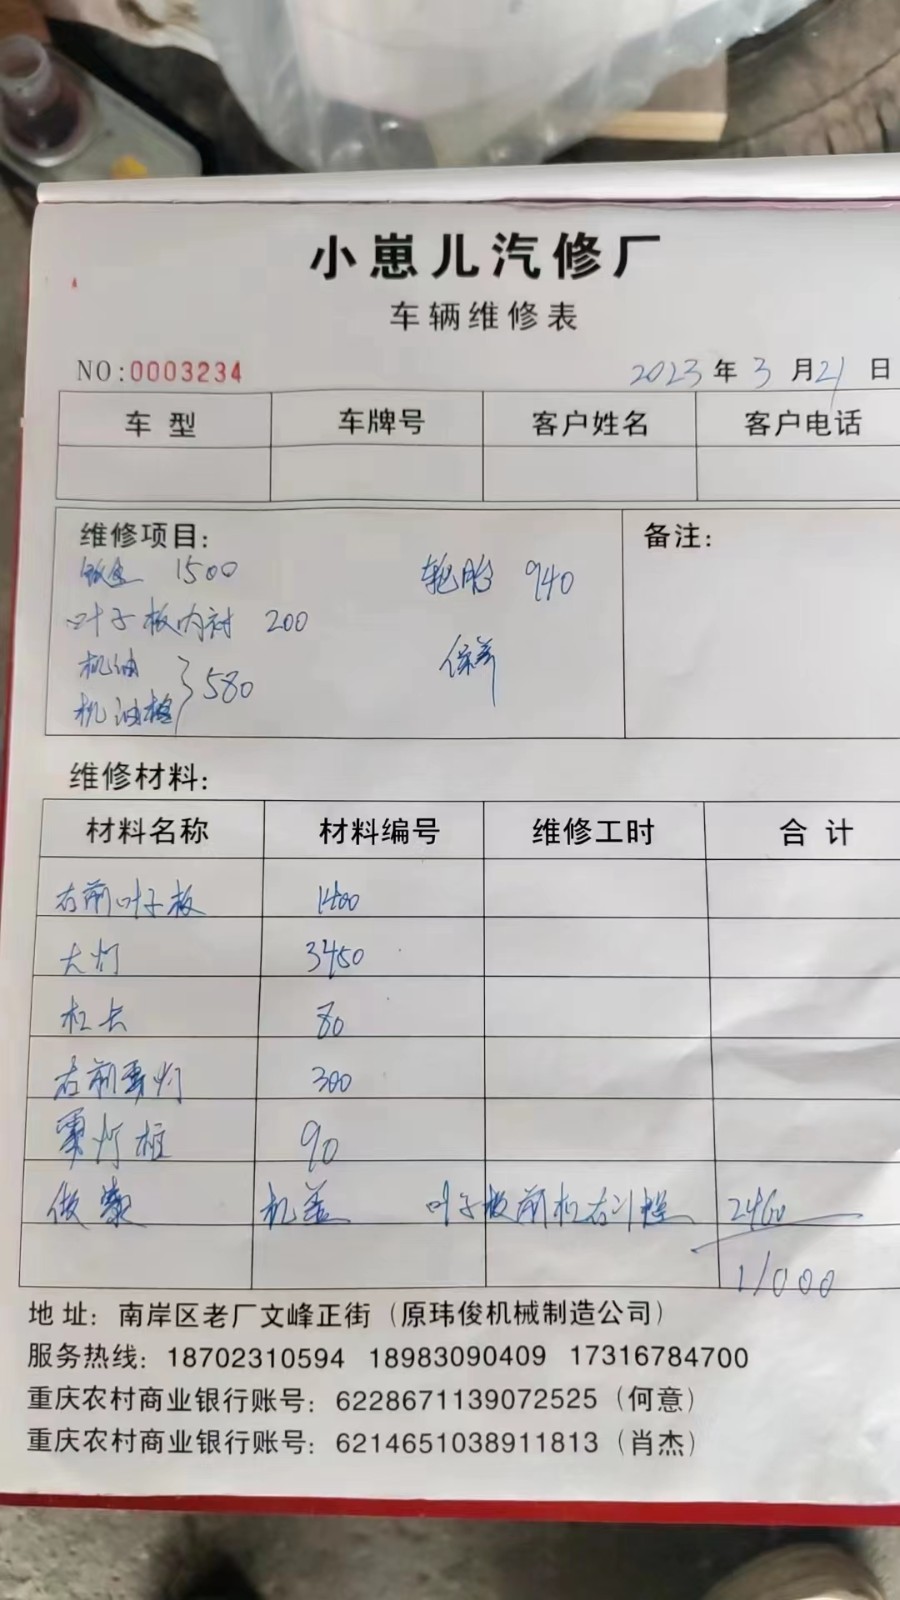 小崽儿汽修厂
车辆维修表
NO:0003234 2023年3月21日
车型 车牌号 客户姓名 客户电话
维修项目: 备注:
钣金 1500 轮胎 940
叶子板内衬 200
机油 580 保养
机油格
维修材料:
材料名称 材料编号 维修工时 合计
右前叶子板 1400
大灯 3450
杠卡 80
右前雾灯 300
雾灯框 90
做漆 机盖 叶子板前杠右 2460
11000
地址: 南岸区老厂文峰正街(原玮俊机械制造公司)
服务热线: 18702310594 18983090409 17316784700
重庆农村商业银行账号: 6228671139072525 (何意)
重庆农村商业银行账号: 6214651038911813 (肖杰)